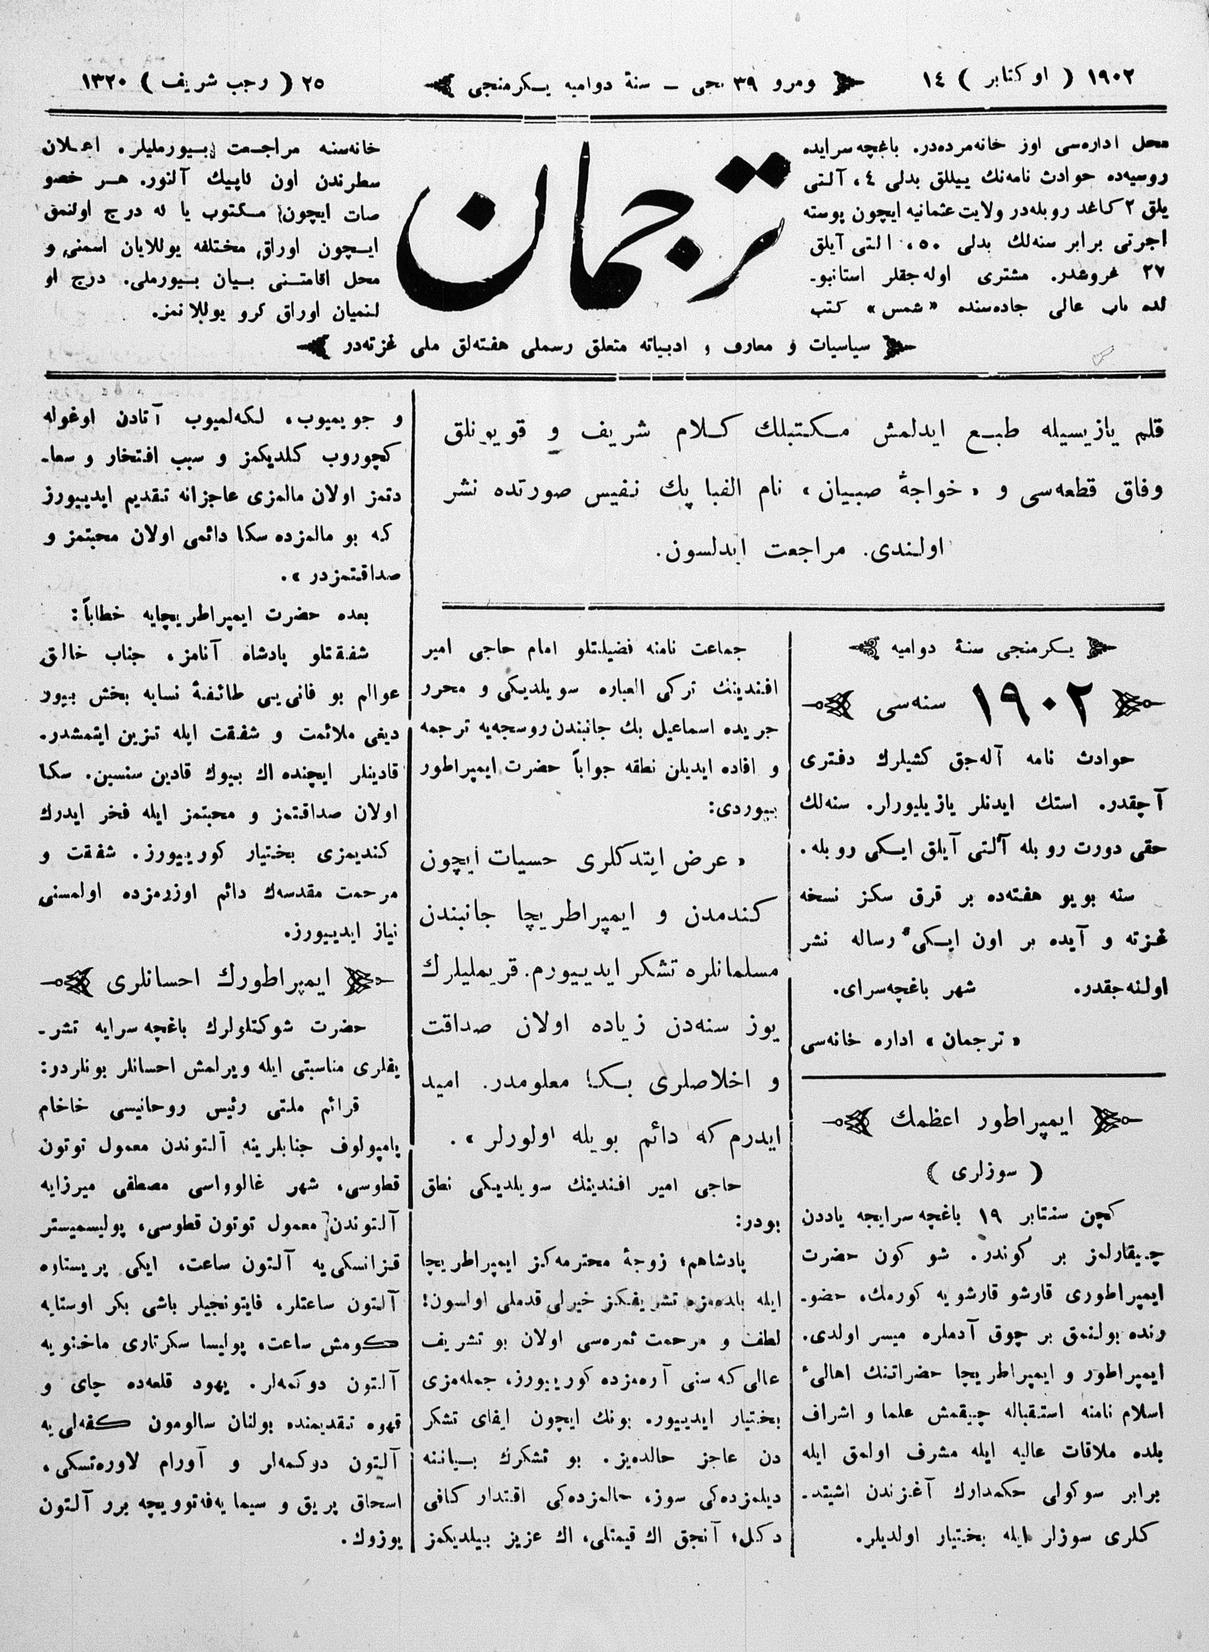 ١٩٠٢ ( اوكتابر ) ١٤
ومرو ٣٩ نجی ــ سنۀ دوامیه یـكرمنجی
٢٥ ( رجب شریف ) ١٣٢٠
محل اداره‌سی اوز خانه‌مزده‌در. باغچه‌سرایده
روسیه‌ده حوادث نامه‌نك ییللق بدلی ٤، آلتی
یلق ٢ كاغد روبله‌در ولایت عثمانیه ایچون پوسته
اجرتی برابر سنه‌لك بدلی ٥٠، التی آیلق
٢٧ غروشدر. مشتری اوله‌جقلر استانبو۔
لده باب عالی جاده‌سنده «شمس» كتب
ترجمان
خانه‌سنه مراجـعت بـیورملیلر. اعـلان
سطرندن اون قاپیك آلنور. هـر خصو
صات ایچون مـكتوب یا له درج اولنمق
ایـچون اوراق مختلفه یوللایان اسمنی و
محل اقامتـنی بـیان بـیورملی. درج او
لـنمیان اوراق كرو یوللانمز.
سیاسیات و معارف و ادبیاته متعلق رسملی هفته‌لق ملی غزته‌در
قلم یازیسیله طبـع ایدلمش مـكتبلك كـلام شریف و قویونلق
وفاق قطعه‌سی و «خواجۀ صبـیان» نام الفبا پك نـفیس صورتده نشر
اولـندی. مراجعت ایدلسون.
یـكرمنجی سنۀ دوامیه
١٩٠٢ سنه‌سی
حوادث نامه آله‌جق كشیلرك دفتری
آچقدر. استك ایدنلر یازیلیورلر. سنه‌لك
حقی دورت روبله آلتی آیلق ایـكی روبله.
سنه بویو هفته‌ده بر قرق سكز نسخه
غـزته و آیده بر اون ایـكی رساله نشر
اولنه‌جقدر. شهر باغچه‌سرای.
«ترجمان» اداره خانه‌سی
ایمپراطور اعظمك
( سوزلری )
كچن سنتابر ١٩ باغچه‌سرایجه یاددن
چـیقارلمز بر كوندر. شو كون حضرت
ایمپراطوری قارشو قارشویه كورمك، حضو۔
رنده بولـنمق بر چوق آدملره میسر اولدی.
ایمپراطور و ایمپراطریچا حضراتـنك اهالیء
اسلام نامنه استقباله چـیقمش علما و اشراف
بلده ملاقات عالیه ایله مشرف اولمق ایله
برابر سوكولی حكمدارك آغزندن اشیتد۔
كلری سوزلر ایله بخـتیار اولدیلر.
جماعت نامنه فضیلـتلو امام حاجی امیر
افـندینك تركی العباره سویلدیـكی و محرر
جریده اسماعیل بك جانبندن روسجه‌یه ترجمه
و افاده ایدیلن نطقه جواباً حضرت ایمپراطور
بیوردی:
«عرض ایتدكلری حسیات ایچون
كـندمدن و ایمپراطریچا جانبـندن
مسلمانلره تشكر ایدیـیورم. قریملیلرك
یوز سنه‌دن زیاده اولان صداقت
و اخلاصلری بـكا معلومدر. امید
ایدرم كه دائم بویله اولورلر».
حاجی امیر افـندینك سویلدیـكی نطق
بودر:
پادشاهم؛ زوجۀ محترمه‌كز ایمپراطریچا
ایله بلده‌مزه تشریفـكز خیرلی قدملی اولسون!
لطف و مرحمت ثمره‌سی اولان بو تشریف
عالی كه سنی آره‌مزده كوریـیورز، جمله‌مزی
بخـتیار ایدیـیور. بونك ایچون ایفای تشكر
دن عاجز حالده‌یز. بو تشكرك بـیانـنه
دیلمزده‌كی سوز، حالمزده‌كی اقـتدار كافی
دكل؛ آنجق اك قیمتلی، اك عزیز بـیلدیكمز
و جویمیوب، لـكه‌لمیوب آتادن اوغوله
كچوروب كلدیكمز و سبب افـتخار و سعا۔
دتمز اولان مالمزی عاجزانه تـقدیم ایدیـیورز
كه بو مالمزده سكا دائمی اولان محبتمز و
صداقـتمزدر».
بعده حضرت ایمپراطریچایه خطاباً:
شفـقتلو پادشاه آنامز، جناب خالق
عوالم بو فانی‌یی طائـفۀ نسایه بخش بیور
دیغی ملائمت و شفـقت ایله تـزین ایتمشدر.
قادینلر ایچنده اك بـیوك قادین سنسین. سكا
اولان صداقـتمز و محبتمز ایله فخر ایدرك
كـندیمزی بخـتیار كوریـیورز. شفـقت و
مرحمت مقدسه‌ك دائم اوزرمزده اولمسنی
نیاز ایدیـیورز.
ایمپراطورك احسانلری
حضرت شوكتلولرك باغچه‌سرایه تشر۔
یفلری مناسبتی ایله ویرلمش احسانلر بونلردر:
قرائم ملتی رئیس روحانیسی خاخام
پامپولوف جنابلرینه آلتوندن معمول توتون
قطوسی، شهر غالوواسی مصطفی میرزایه
آلـتوندن معمول توتون قطوسی، پولیسمیستر
قـزانسكی‌یه آلـتون ساعت، ایكی پریستاره
آلـتون ساعتلر، فایتونجیلر باشی بكر اوستایه
كومش ساعت، پولیسا سكرتاری ماخنویه
آلـتون دوكمه‌لر. یهود قلعه‌ده چای و
قهوه تـقدیمنده بولنان سالومون كفه‌لی‌یه
آلـتون دوكمه‌لر و آورام لاوره‌تسكی،
اسحاق پریق و سیما یه‌فه‌توویچه برر آلـتون
یوزوك.